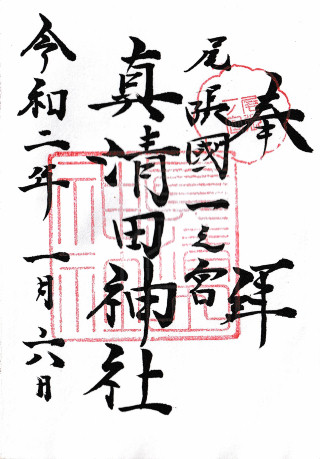 奉拝
尾張國一之宮
真清田神社
令和二年一月六日